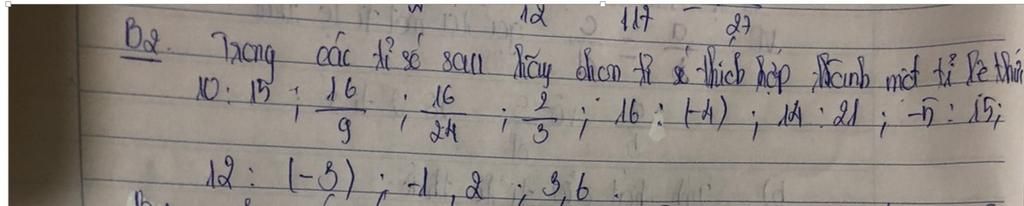 12 117 27
B2. Trong các tỉ số sau hãy chọn tỉ số thích hợp thành một tỉ lệ thức
10 : 15 ; 16/9 ; 16/24 ; 2/3 ; 16 : (-4) ; 14 : 21 ; -5 : 15 ;
12 : (-3) ; -1,2 : 3,6.